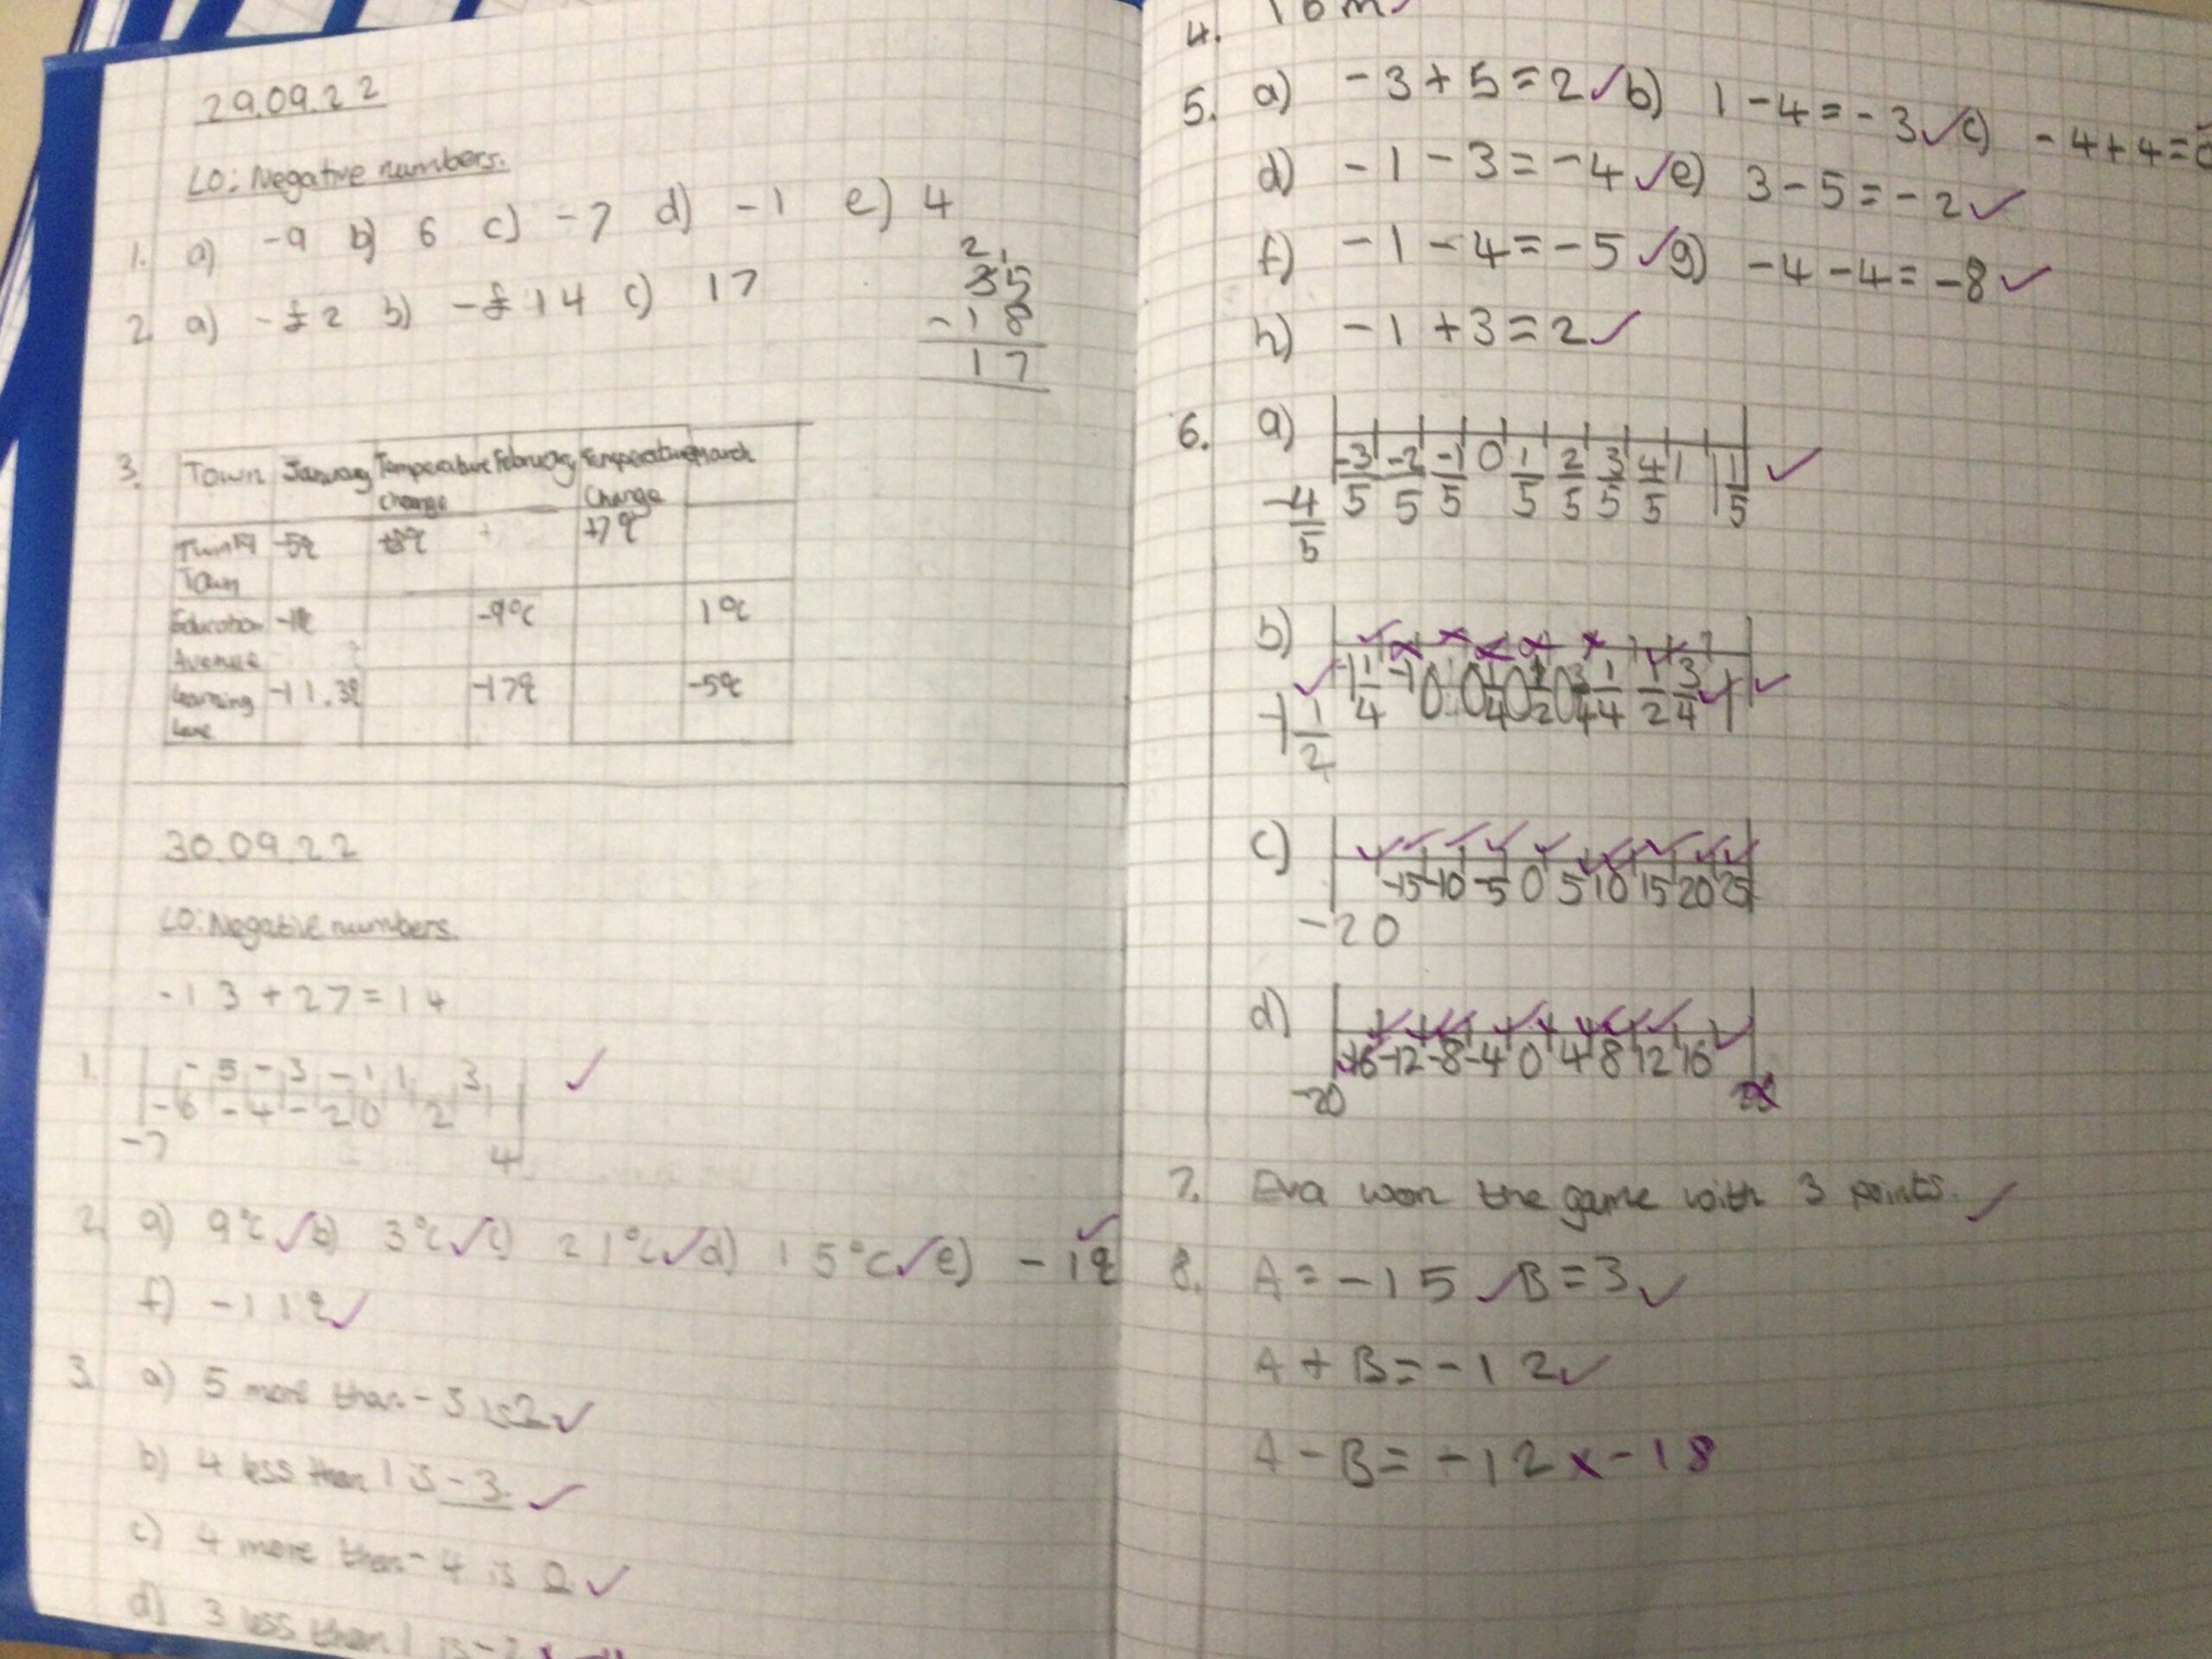 29.09.22
LO: Negative numbers.
1. a) -9 b) 6 c) -7 d) -1 e) 4
2 a) -£2 b) -£14 c) 17
2 1
35
-18
17
3. Town January Temperature change February Temperature Change March
Town -5°C +7°C
Education Avenue -9°C 1°C
Learning Lane -11.3°C -17°C -5°C
30.09.22
LO: Negative numbers.
-13+27=14
1. -5 -3 -1 1 3
-6 -4 -2 0 2
-7 4
2. a) 9°C b) 3°C c) 21°C d) 15°C e) -1°C
f) -11°C
3. a) 5 more than -3 is 2
b) 4 less than 1 is -3.
c) 4 more than -4 is 0
d) 3 less than 1 is -2
4. 16m
5. a) -3+5=2 b) 1-4=-3 c) -4+4=0
d) -1-3=-4 e) 3-5=-2
f) -1-4=-5 g) -4-4=-8
h) -1+3=2
6. a) -4/5 -3/5 -2/5 -1/5 0 1/5 2/5 3/5 4/5 1 1 1/5
b) -1 1/2 -1 1/4 -1
c) -15 -10 -5 0 5 10 15 20 25
-20
d) -16 -12 -8 -4 0 4 8 12 16
-20
7. Eva won the game with 3 points.
8. A=-15 B=3
A+B=-12
A-B=-12 x -18